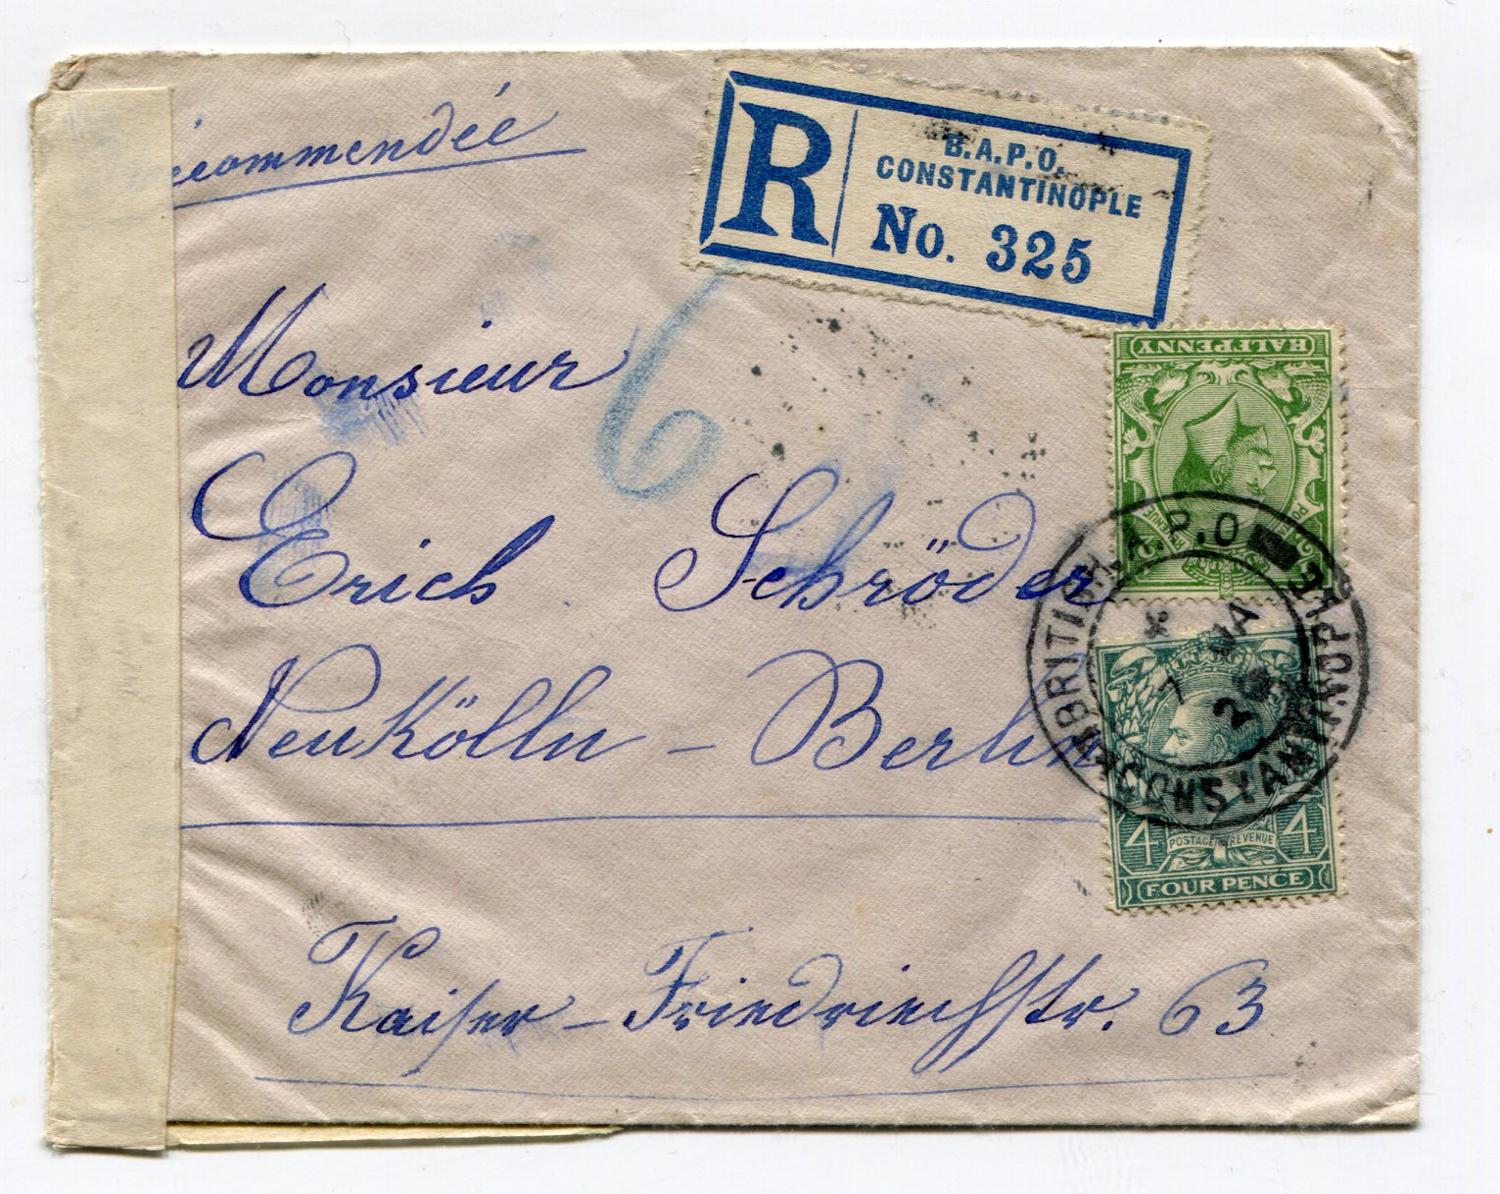 Recommendée
R
B.A.P.O.
CONSTANTINOPLE
No. 325
6
Monsieur
Erich Schröder
Neukölln - Berlin
Kaiser-Friedrichstr. 63
HALFPENNY
BRITISH A.P.O
CONSTANTINOPLE
7 JA 20
4 POSTAGE REVENUE 4
FOUR PENCE